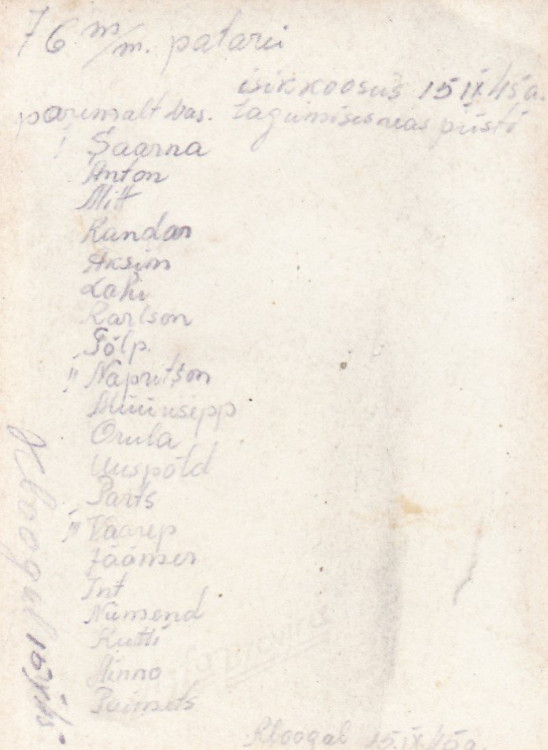 76 m/m. patarei
isikkoosus 15 IX 45 a.
paremalt vas. tagumisesreas püsti
I Saarna
Anton
Mitt
Kandar
Aksim
Laki
Karlson
Põlp.
II Naprutson
Müürisepp
Orula
Uuspõld
Parts
III Vaarep
Jäämer
Int
Nümend
Rutti
Hinno
Paimets
Kloogal 15 IX 45 a
Kloogal